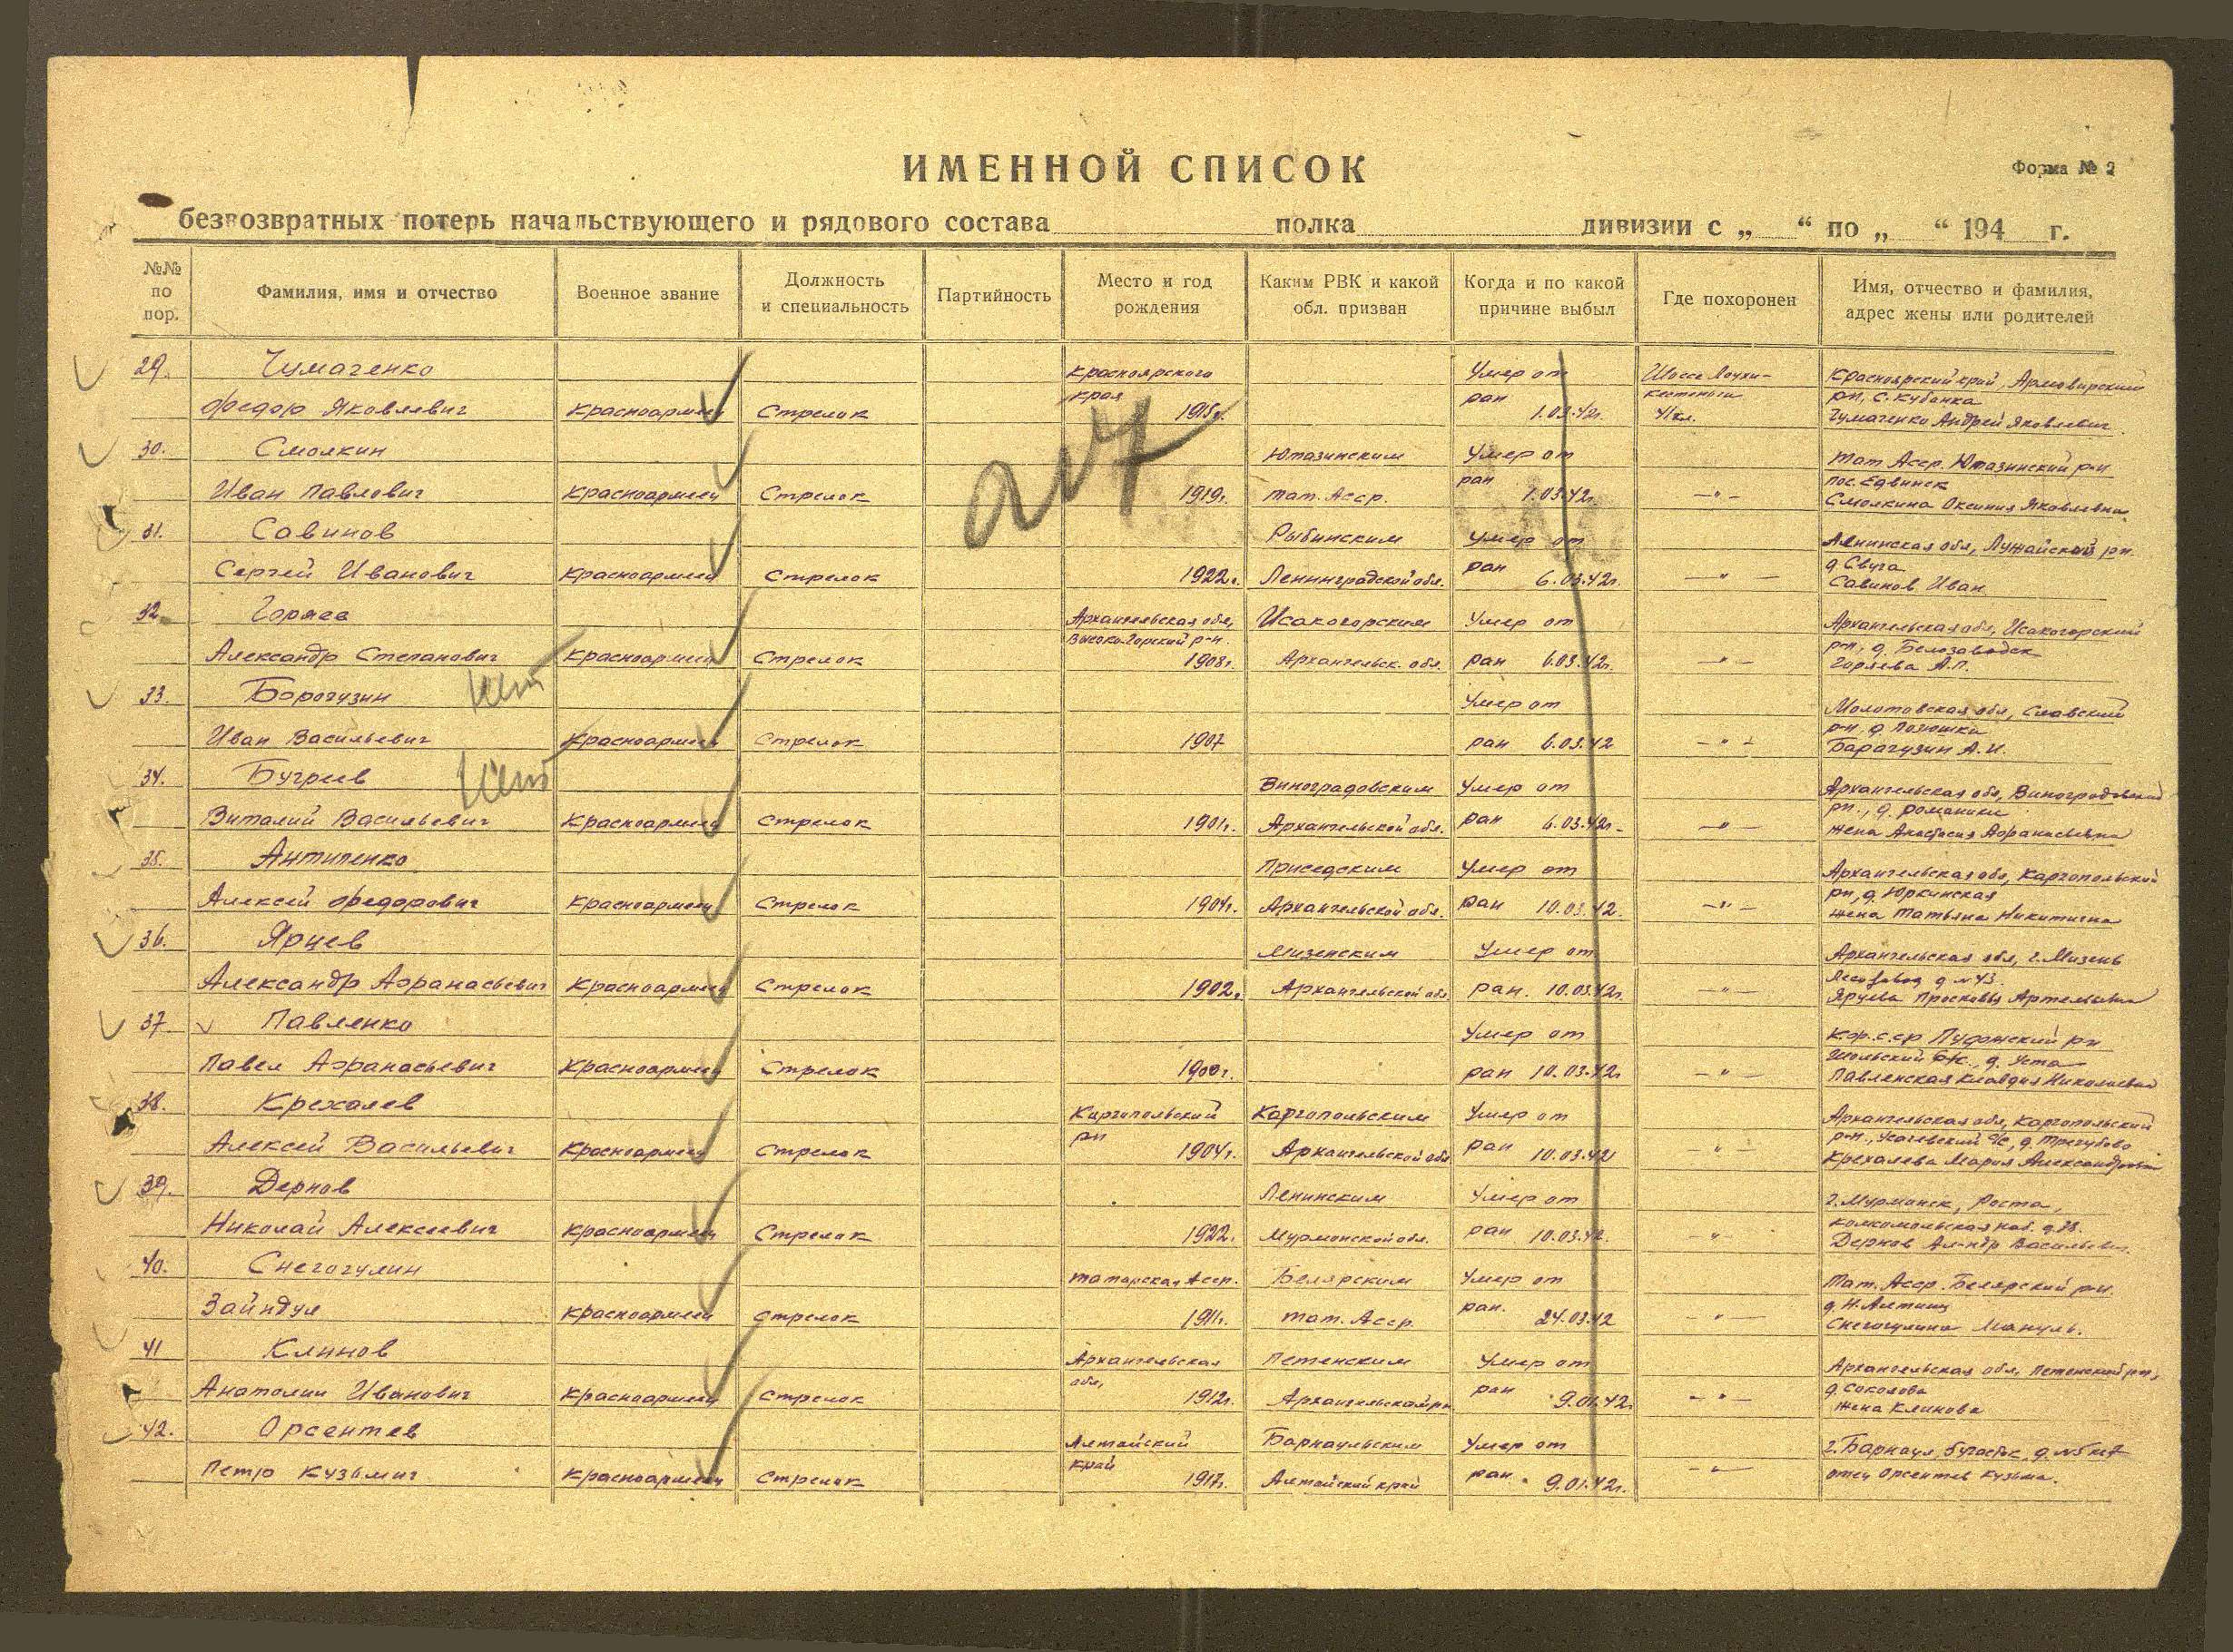 ИМЕННОЙ СПИСОК
Форма № 2
безвозвратных потерь начальствующего и рядового состава полка дивизии с „ “ по „ “ 194 г.
№№ по пор.
Фамилия, имя и отчество
Военное звание
Должность и специальность
Партийность
Место и год рождения
Каким РВК и какой обл. призван
Когда и по какой причине выбыл
Где похоронен
Имя, отчество и фамилия, адрес жены или родителей
29. Чумаченко Красноярского Умер от Шоссе Лоухи- Красноярский край, Армавирский
края ран Кестеньга рн, с. Кубанка
Федор Яковлевич Красноармеец Стрелок 1915г. 1.03.42г. 41кл. Чумаченко Андрей Яковлевич
207
30. Смолкин Ютазинским Умер от Тат Асср. Ютазинский р-н
ран пос.
Иван Павлович Красноармеец Стрелок 1919г. Тат. Асср. 1.03.42г. —"— Смолкина Оксиния Яковлевна
31. Савинов Рыбинским Умер от обл,
ран д
Сергей Иванович Красноармеец Стрелок 1922г. Ленинградской обл. 6.03.42г. —"— Савинов Иван
32 Горяев Архангельская обл, Исакогорским Умер от Архангельская обл, Исакогорский
Высоко-Горский р-н. р-н, д. Белозаводск
Александр Степанович Красноармеец Стрелок 1908г. Архангельск. обл. ран 6.03.42г. —"— Горяева А.П.
33. Борогузин Умер от Молотовская обл,
р-н д
Иван Васильевич Красноармеец Стрелок 1907 ран 6.03.42 —"— Барагузин А.И.
34. Бугреев Виноградовским Умер от Архангельская обл, Виноградовский
рн., д. Романики
Виталий Васильевич Красноармеец Стрелок 1901г. Архангельской обл. ран 6.03.42г. —"— жена Анастасия Афанасьевна
35. Антипенко Умер от Архангельская обл, Каргопольский
рн, д. Юркинская
Алексей Федорович Красноармеец Стрелок 1904г. Архангельской обл. ран 10.03.42. —"— жена Татьяна Никитична
36. Ярцев Мизенским Умер от Архангельская обл, г. Мизень
Лесозавод д №43
Александр Афанасьевич Красноармеец Стрелок 1902г. Архангельской обл ран. 10.03.42г. —"— Ярцева
37. Павленко Умер от К.ф.с.ср Пудожский рн
с/с, д. Уста
Павел Афанасьевич Красноармеец Стрелок 1900г. ран 10.03.42г —"— Павленская Клавдия Николаевна
38. Крехалев Каргопольский Каргопольским Умер от Архангельская обл, Каргопольский
рн р-н., Усачевский с/с, д Трегубово
Алексей Васильевич Красноармеец Стрелок 1904г. Архангельской обл ран 10.03.42 —"— Крехалева Мария Александровна
39. Дернов Ленинским Умер от г. Мурманск, Роста,
Комсомольская
Николай Алексеевич Красноармеец Стрелок 1922. Мурманской обл. ран 10.03.42. —"— Дернов Ал-ндр Васильевич.
40. Снегогулин Татарская Асср. Белярским Умер от Тат. Асср. Белярский р-н.
д. Н.
Зайндул Красноармеец Стрелок 1911г. Тат. Асср. ран. 24.03.42 —"— Снегогулина
41 Клинов Архангельская Петенским Умер от Архангельская обл, Петенский рн,
обл, д. Соколова
Анатолий Иванович Красноармеец Стрелок 1912г. ран 9.01.42г —"— жена Клинова
42. Орсентев Алтайский Барнаульским Умер от г. Барнаул,
край
Петр Кузьмич Красноармеец Стрелок 1917г. Алтайский край ран. 9.01.42г. —"— отец Орсентев Кузьма.